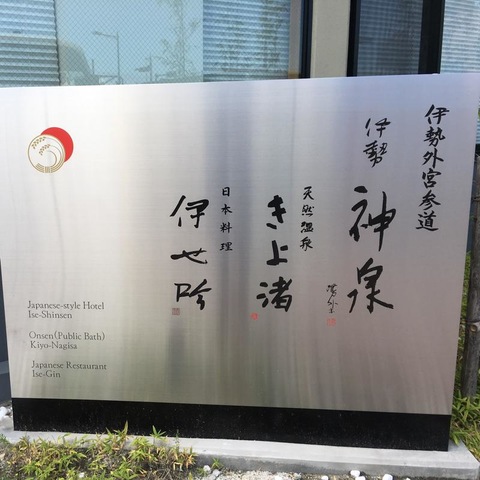 伊勢外宮参道
伊勢
神泉
天然温泉
きよ渚
日本料理
伊せ吟
Japanese-style Hotel
Ise-Shinsen
Onsen(Public Bath)
Kiyo-Nagisa
Japanese Restaurant
Ise-Gin